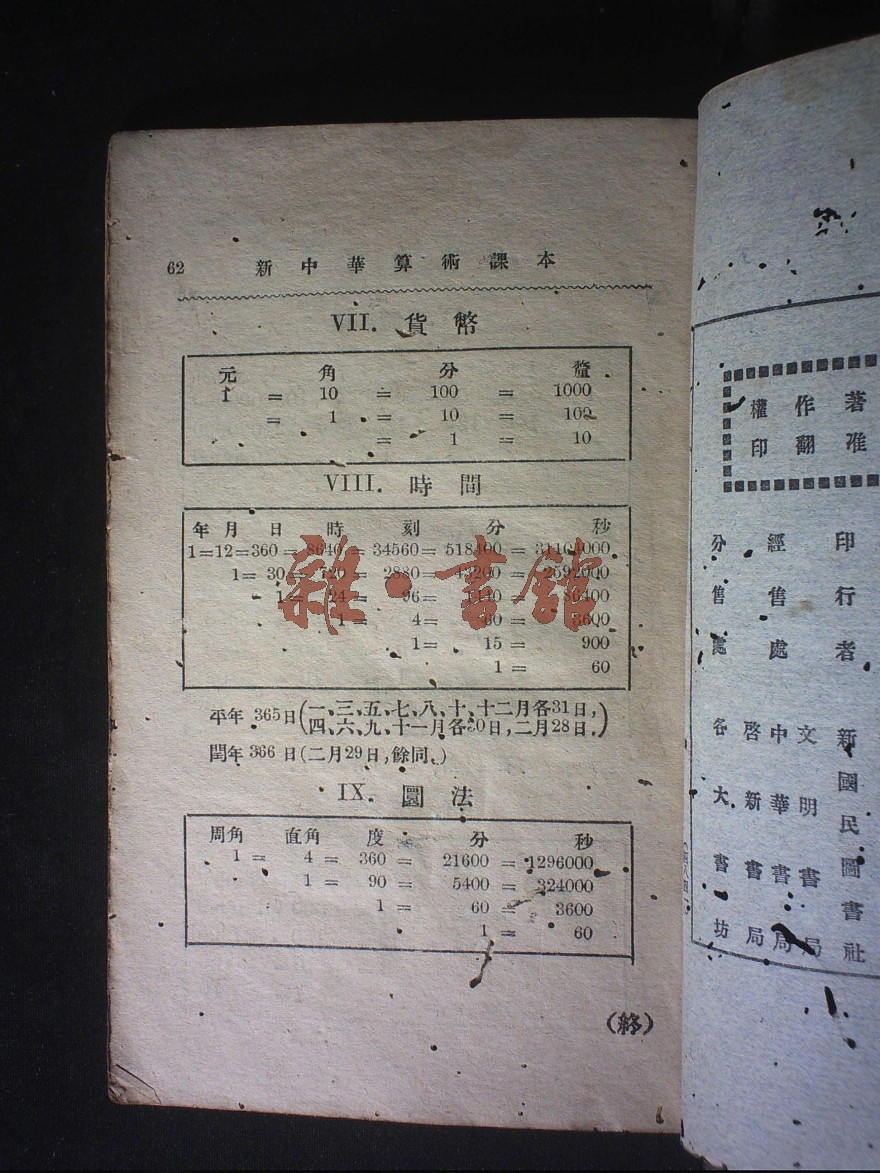 62 新中華算術課本
VII. 貨幣
元 角 分 釐
1 = 10 = 100 = 1000
= 1 = 10 = 100
= 1 = 10
VIII. 時間
年 月 日 時 刻 分 秒
1=12=360= 8640 = 34560= 518400 = 31104000
1= 30= 720 = 2880= 43200 = 2592000
1= 24 = 96= 1440 = 86400
1= 4= 60 = 3600
1= 15 = 900
1 = 60
平年 365日(一、三、五、七、八、十、十二月各31日,
四、六、九、十一月各30日,二月28日.)
閏年 366 日(二月29日,餘同.)
IX. 圜法
周角 直角 度 分 秒
1 = 4 = 360 = 21600 = 1296000
1 = 90 = 5400 = 324000
1 = 60 = 3600
1 = 60
(終)
雜·書館
著作權
准翻印
印行者 新國民圖書社
經售處 文明書局
中華書局
啓新書局
分售處 各大書坊